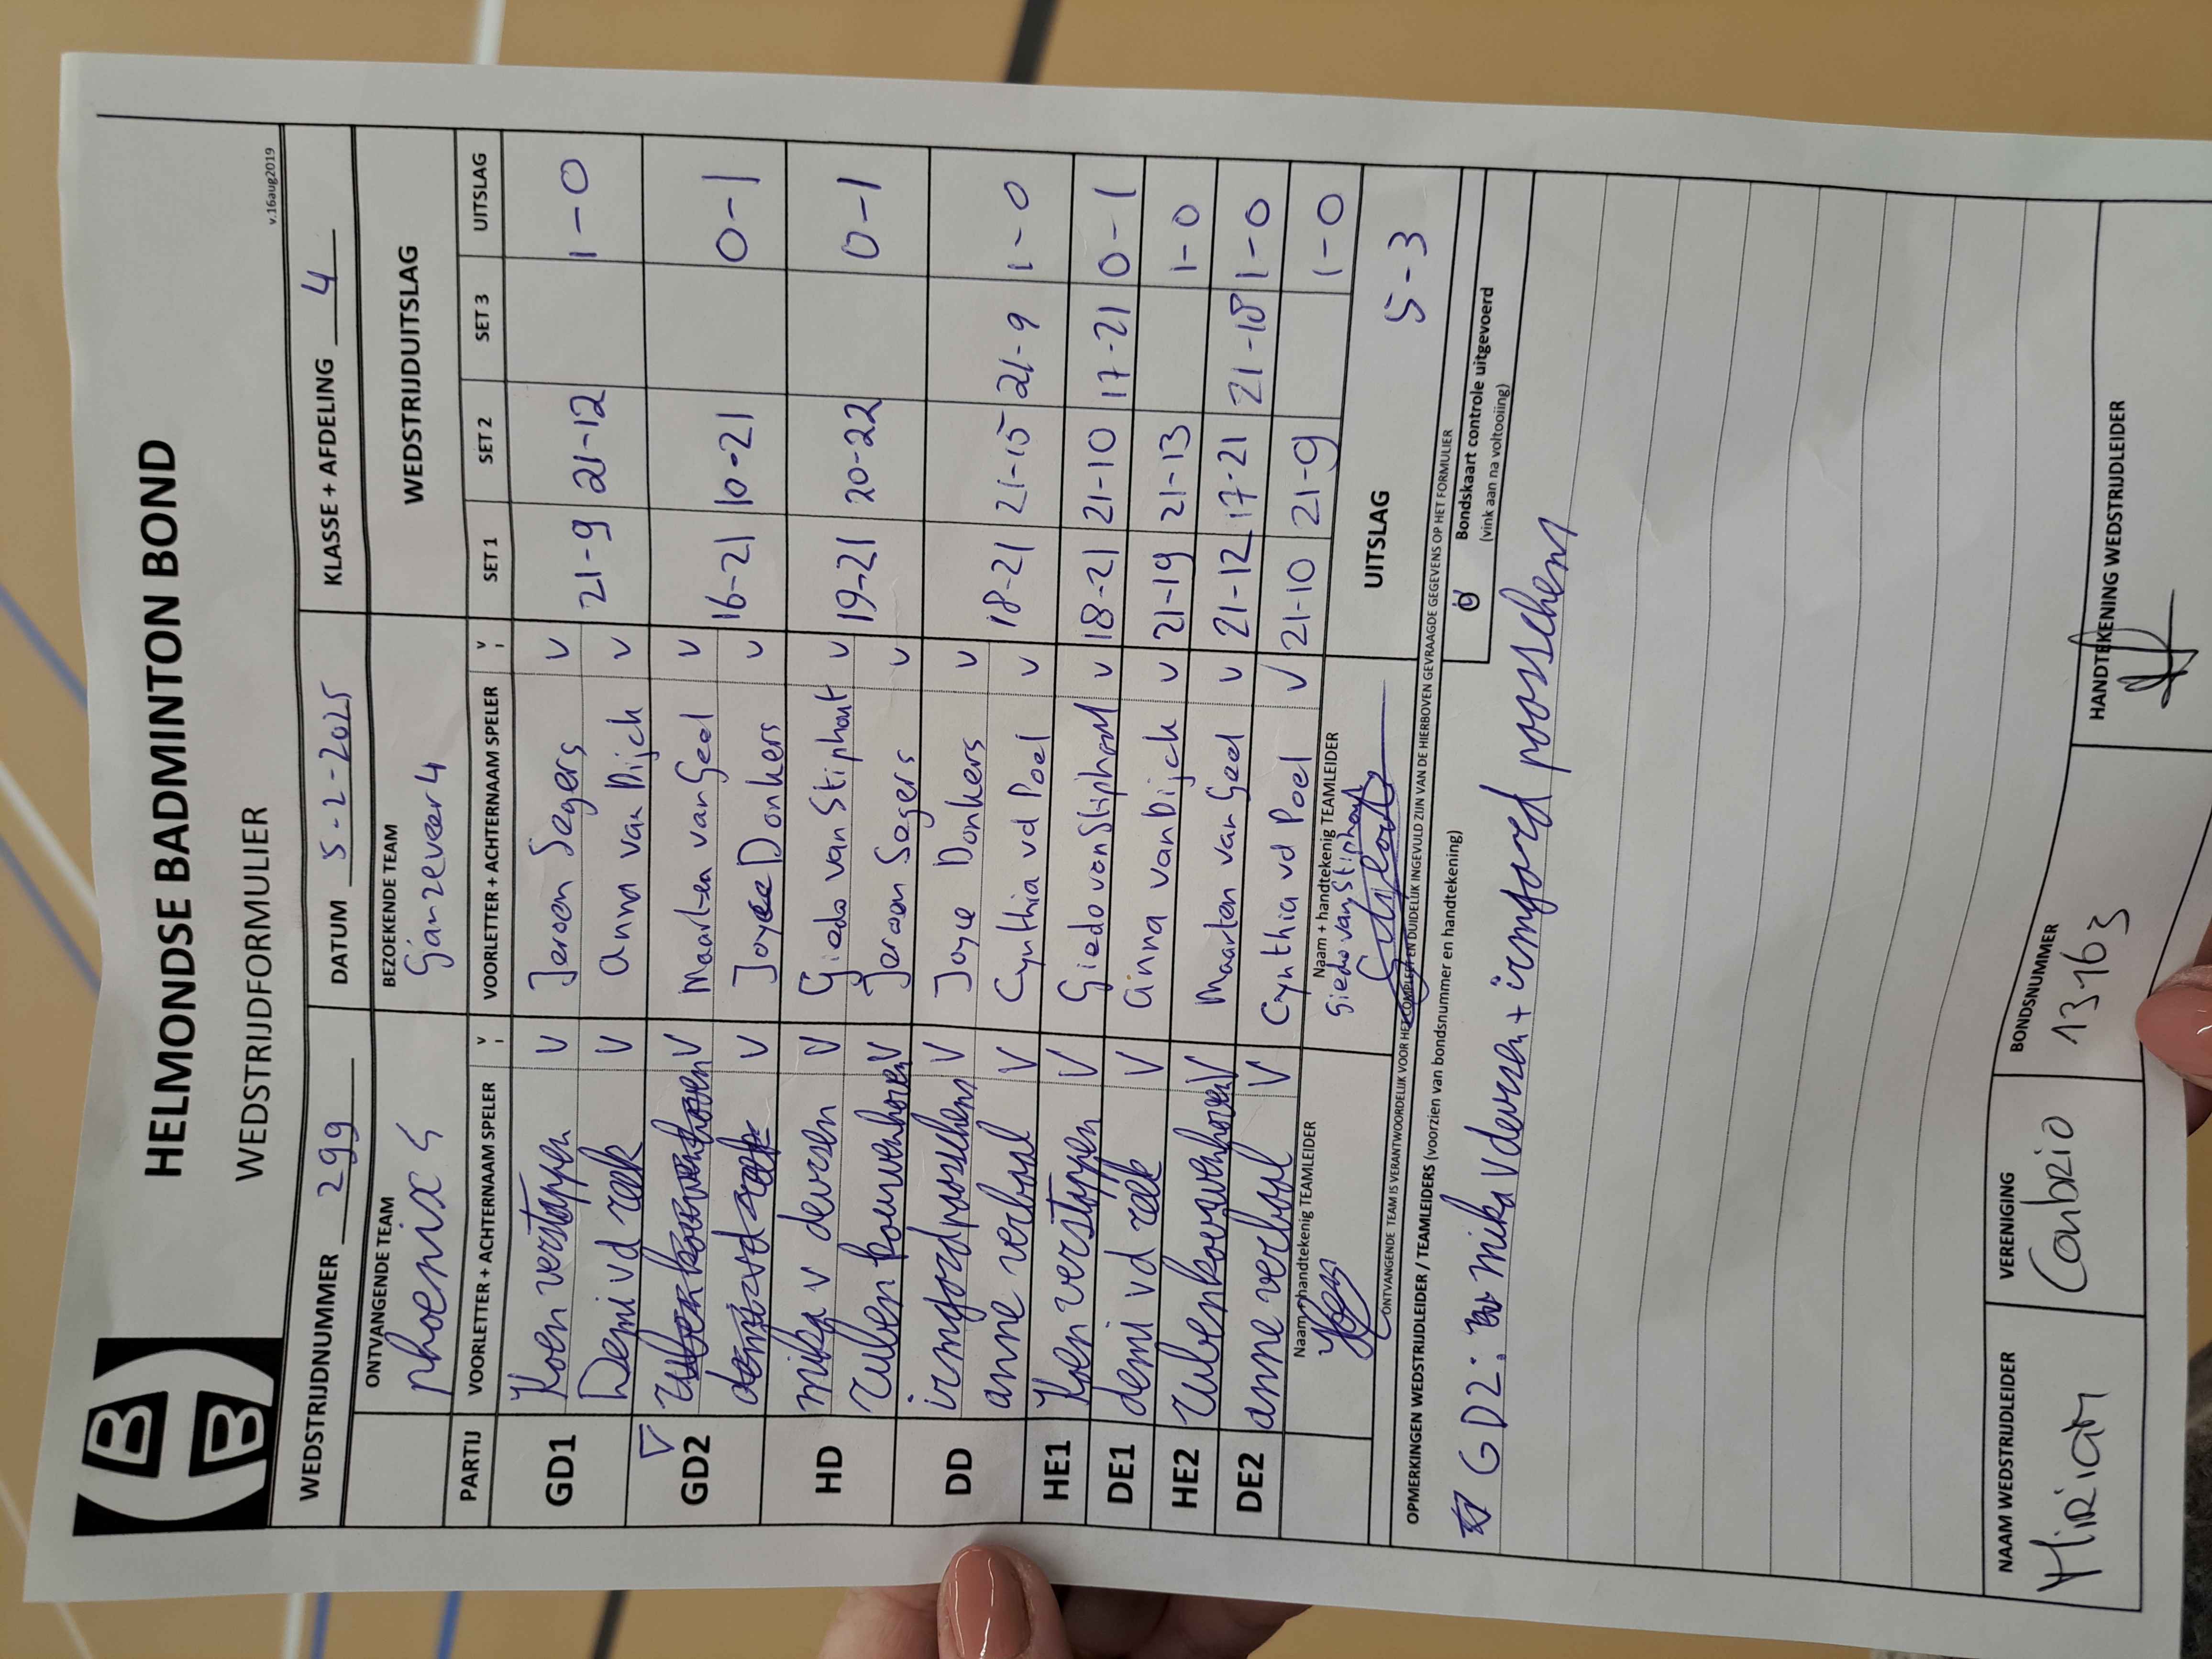 HELMONDSE BADMINTON BOND
WEDSTRIJDFORMULIER
v.16aug2019
WEDSTRIJDNUMMER 299 DATUM 5-2-2025 KLASSE + AFDELING 4
ONTVANGENDE TEAM BEZOEKENDE TEAM WEDSTRIJDUITSLAG
phoenix 5 Ganzeveer 4
PARTIJ VOORLETTER + ACHTERNAAM SPELER V VOORLETTER + ACHTERNAAM SPELER V SET 1 SET 2 SET 3 UITSLAG
GD1 Koen verstappen V Jeroen Segers V 21-9 21-12 1-0
Demi vd reek V Anna van Dijck V
GD2 V Maarten van Geel V 16-21 10-21 0-1
V Joyce Donkers V
HD mika v deursen V Giedo van Stiphout V 19-21 20-22 0-1
ruben kouwenhoven V Jeroen Segers V
DD irmgard poosschem V Joyce Donkers V
anne verbaal V Cynthia vd Poel V 18-21 21-15 21-9 1-0
HE1 Koen verstappen V Giedo van Stiphout V 18-21 21-10 17-21 0-1
DE1 demi vd reek V Anna van Dijck V 21-19 21-13 1-0
HE2 ruben kouwenhoven V Maarten van Geel V 21-12 17-21 21-18 1-0
DE2 anne verbaal V Cynthia vd Poel V 21-10 21-9 1-0
Naam + handtekenig TEAMLEIDER Naam + handtekenig TEAMLEIDER UITSLAG 5-3
Koen Giedo van Stiphout
ONTVANGENDE TEAM IS VERANTWOORDELIJK VOOR HET COMPLEET EN DUIDELIJK INGEVULD ZIJN VAN DE HIERBOVEN GEVRAAGDE GEGEVENS OP HET FORMULIER
OPMERKINGEN WEDSTRIJDLEIDER / TEAMLEIDERS (voorzien van bondsnummer en handtekening) Bondskaart controle uitgevoerd
(vink aan na voltooiing)
GD2: mika v deursen + irmgard poosschem
NAAM WEDSTRIJDLEIDER VERENIGING BONDSNUMMER HANDTEKENING WEDSTRIJDLEIDER
Miriam Conbrio 13163